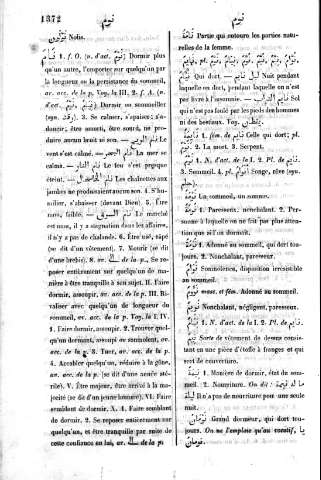 1372
نوم
نوم
Notis.
نَامَ 1. f. O. (n. d'act. نَوْمٌ) Dormir plus
qu'un autre, l'emporter sur quelqu'un par
la longueur ou la persistance du sommeil,
av. acc. de la p. Voy. la III. 2. f. A. (n.
d'act. نَوْمٌ) Dormir ou sommeiller
(syn. رقد). 3. Se calmer, s'apaiser; s'en-
dormir, être amorti, être sourd, ne pro-
duire aucun bruit ou son. — نام الريح Le
vent s'est calmé. — نام البحر La mer se
calma. — نام النار Le feu s'est presque
éteint. — نام الخلخال Les chaînettes aux
jambes ne produisirent aucun son. 4. S'hu-
milier, s'abaisser (devant Dieu). 5. Être
mou, faible. — نام السوق Le marché
est mou, il y a stagnation dans les affaires,
il n'y a pas de chalands. 6. Être usé, râpé
(se dit d'un vêtement). 7. Mourir (se dit
d'une brebis). av. الى de la p., Se re-
poser entièrement sur quelqu'un de ma-
nière à être tranquille à son sujet. II. Faire
dormir, assoupir, av. acc. de la p. III. Ri-
valiser avec quelqu'un de longueur du
sommeil, av. acc. de la p. Voy. la I. IV.
1. Faire dormir, assoupir. 2. Trouver quel-
qu'un dormant, assoupi ou somnolent, av.
acc. de la p. 3. Tuer, av. acc. de la p.
4. Accabler quelqu'un, réduire à la gêne,
av. acc. de la p. (se dit d'une année sté-
rile). V. Être majeur, être arrivé à la ma-
jorité (se dit d'un jeune homme). VI. Faire
semblant de dormir. X. 1. Faire semblant
de dormir. 2. Se reposer entièrement sur
quelqu'un, et être tranquille par suite de
cette confiance en lui, av. الى de la p.
Partie qui entoure les parties natu-
relles de la femme.
Qui dort. — ليل نائم Nuit pendant
laquelle on dort, pendant laquelle on s'est
livré à l'insomnie. Sol
qui n'est pas foulé par les pieds des hommes
ni des bestiaux. Voy. يقظان.
نائمة 1. fém. de نائم Celle qui dort;
2. La mort. 3. Serpent.
1. N. d'act. de la I. 2. Pl. de نائم.
3. Sommeil. 4. pl. Songe, rêve (syn.
حلم).
Un sommeil, un somme.
1. Paresseux, nonchalant. 2. Per-
sonne à laquelle on ne fait pas plus atten-
tion que si elle dormait.
1. Adonné au sommeil, qui dort tou-
jours. 2. Nonchalant, paresseux.
Somnolence, disposition irrésistible
au sommeil.
masc. et fém. Adonné au sommeil.
Nonchalant, négligent, paresseux.
1. N. d'act. de la I. 2. Pl. de نائم.
Sorte de vêtement de dessus consis-
tant en une pièce d'étoffe à franges et qui
sert de couverture.
1. Manière de dormir, état de som-
meil. 2. Nourriture. On dit : ما له نيمة
ليلة Il n'a pas de nourriture pour une seule
nuit.
Grand dormeur, qui dort tou-
jours. On ne l'emploie qu'au vocatif, يا
نومان